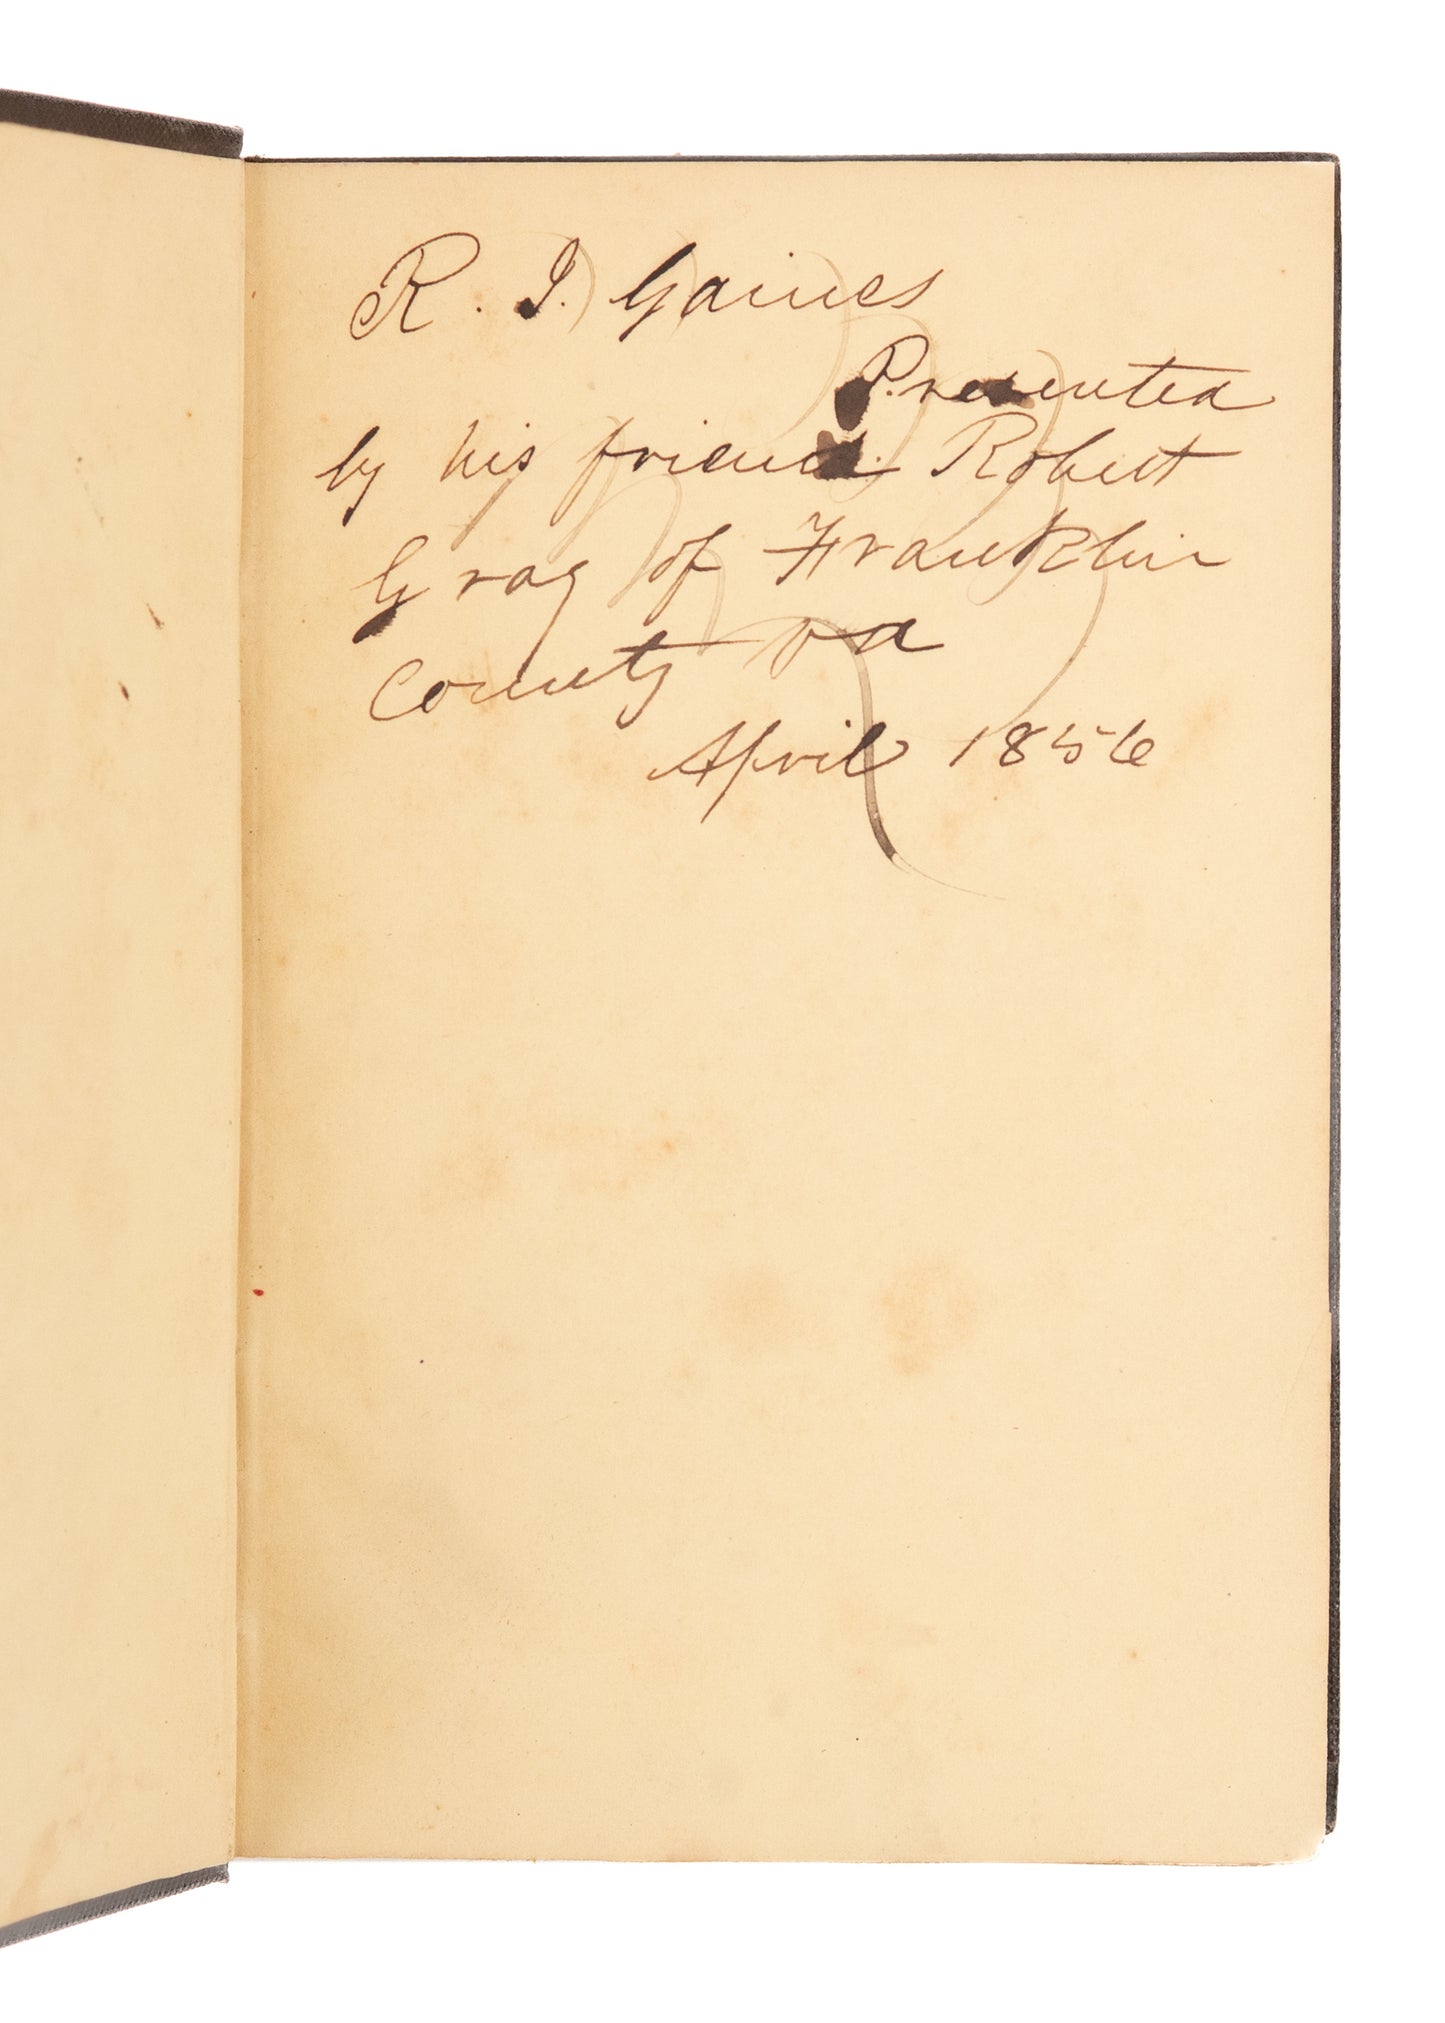 R. I. Gaines
Presented
by his friend Robert
Gray of Franklin
County va
April 1856